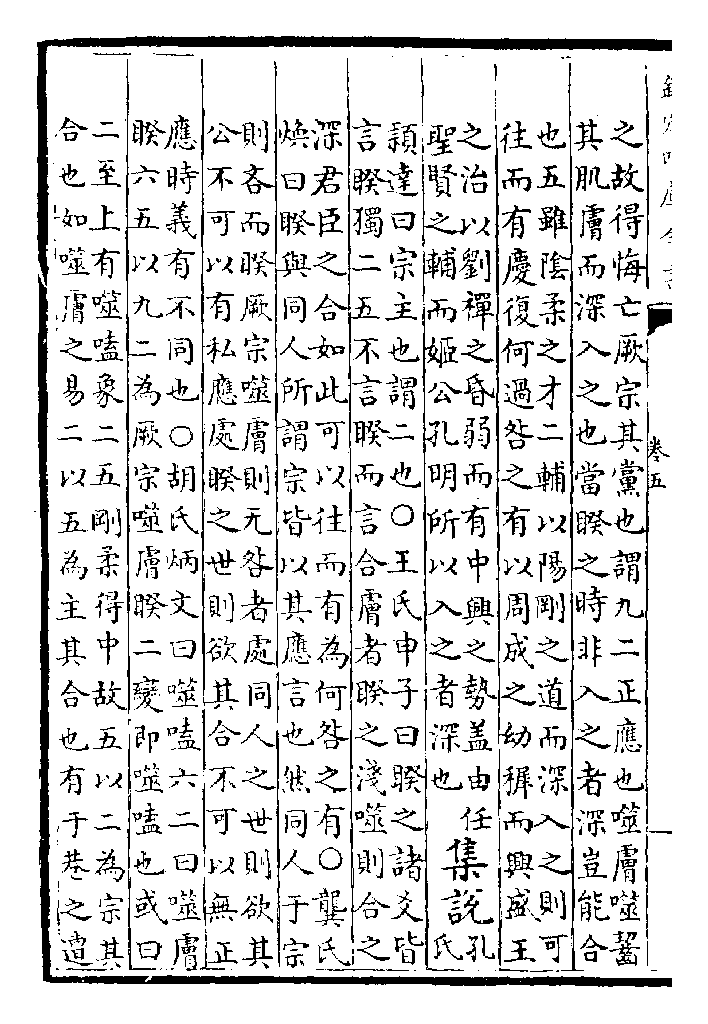 欽定四庫全書
卷五
之故得悔亡厥宗其黨也謂九二正應也噬膚噬齧
其肌膚而深入之也當睽之時非入之者深豈能合
也五雖陰柔之才二輔以陽剛之道而深入之則可
往而有慶復何過咎之有以周成之幼稺而興盛王
之治以劉禪之昏弱而有中興之勢盖由任
聖賢之輔而姬公孔明所以入之者深也
集說
孔
氏
頴達曰宗主也謂二也○王氏申子曰睽之諸爻皆
言睽獨二五不言睽而言合膚者睽之淺噬則合之
深君臣之合如此可以往而有為何咎之有○龔氏
煥曰睽與同人所謂宗皆以其應言也然同人于宗
則吝而睽厥宗噬膚則无咎者處同人之世則欲其
公不可以有私應處睽之世則欲其合不可以無正
應時義有不同也○胡氏炳文曰噬嗑六二曰噬膚
睽六五以九二為厥宗噬膚睽二變即噬嗑也或曰
二至上有噬嗑象二五剛柔得中故五以二為宗其
合也如噬膚之易二以五為主其合也有于巷之遭